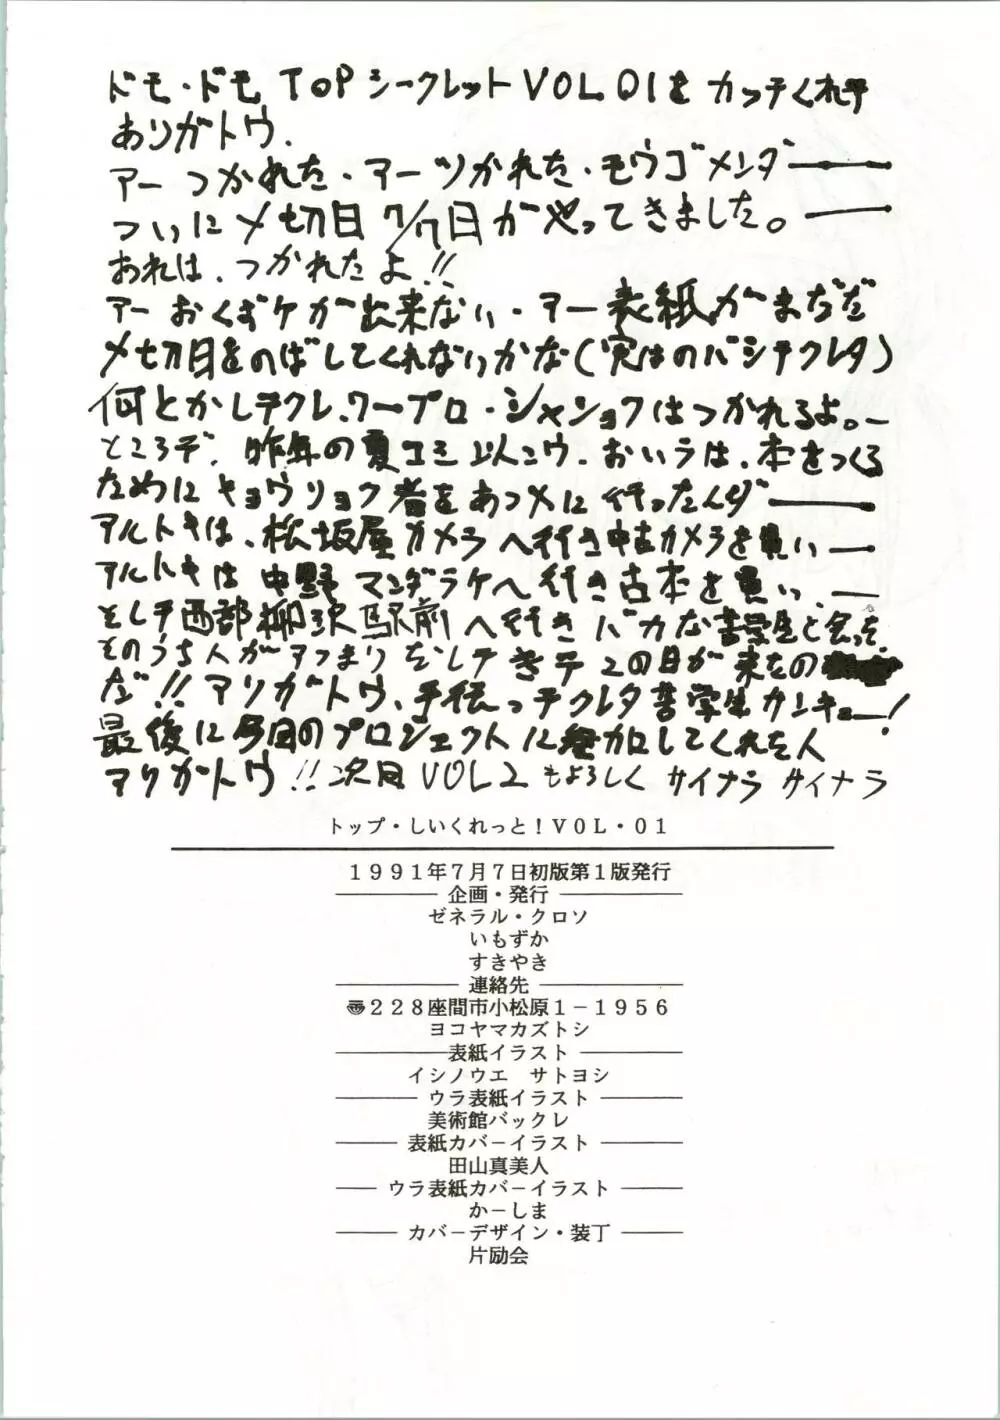 ドモ・ドモ TOPシークレットVOL.01をカッテくれテ
ありガトウ.
アーつかれた・アーツかれた・モウゴメンダ――
ついに〆切日7/7日がやってきました。――
おれは、つかれたよ!!
アーおくずケが出来ない・アー表紙がまだだ
〆切日をのばしてくれないかな(実はのバシテクレタ)
何とかしテクレ、ワープロ・シャショクはつかれるよ。―
ところデ、昨年の夏コミ以ンコウ、おいラは、本をつくる
ためにキョウリョク者をあつメに行ったんダ――
アルトキは、松坂屋カメラへ行き中古カメラを買い―
アルトキは中野マンダラケへ行き古本を買い、―
そしテ西部柳沢駅前へ行きバカな苦学生と会った
そのうち人がアつまりをしテきテこの日が来たの
だ!!アリガトウ、手伝ッテクレタ苦学生サンキョー!
最後に今回のプロジェクトに参加してくれた人
アリガトウ!!次回VOL2もよろしく サイナラ サイナラ
トップ・しいくれっと!VOL・01
1991年7月7日初版第1版発行
企画・発行
ゼネラル・クロソ
いもずか
すきやき
連絡先
〠228座間市小松原1-1956
ヨコヤマカズトシ
表紙イラスト
イシノウエ サトヨシ
ウラ表紙イラスト
美術館バックレ
表紙カバーイラスト
田山真美人
ウラ表紙カバーイラスト
かーしま
カバーデザイン・装丁
片励会